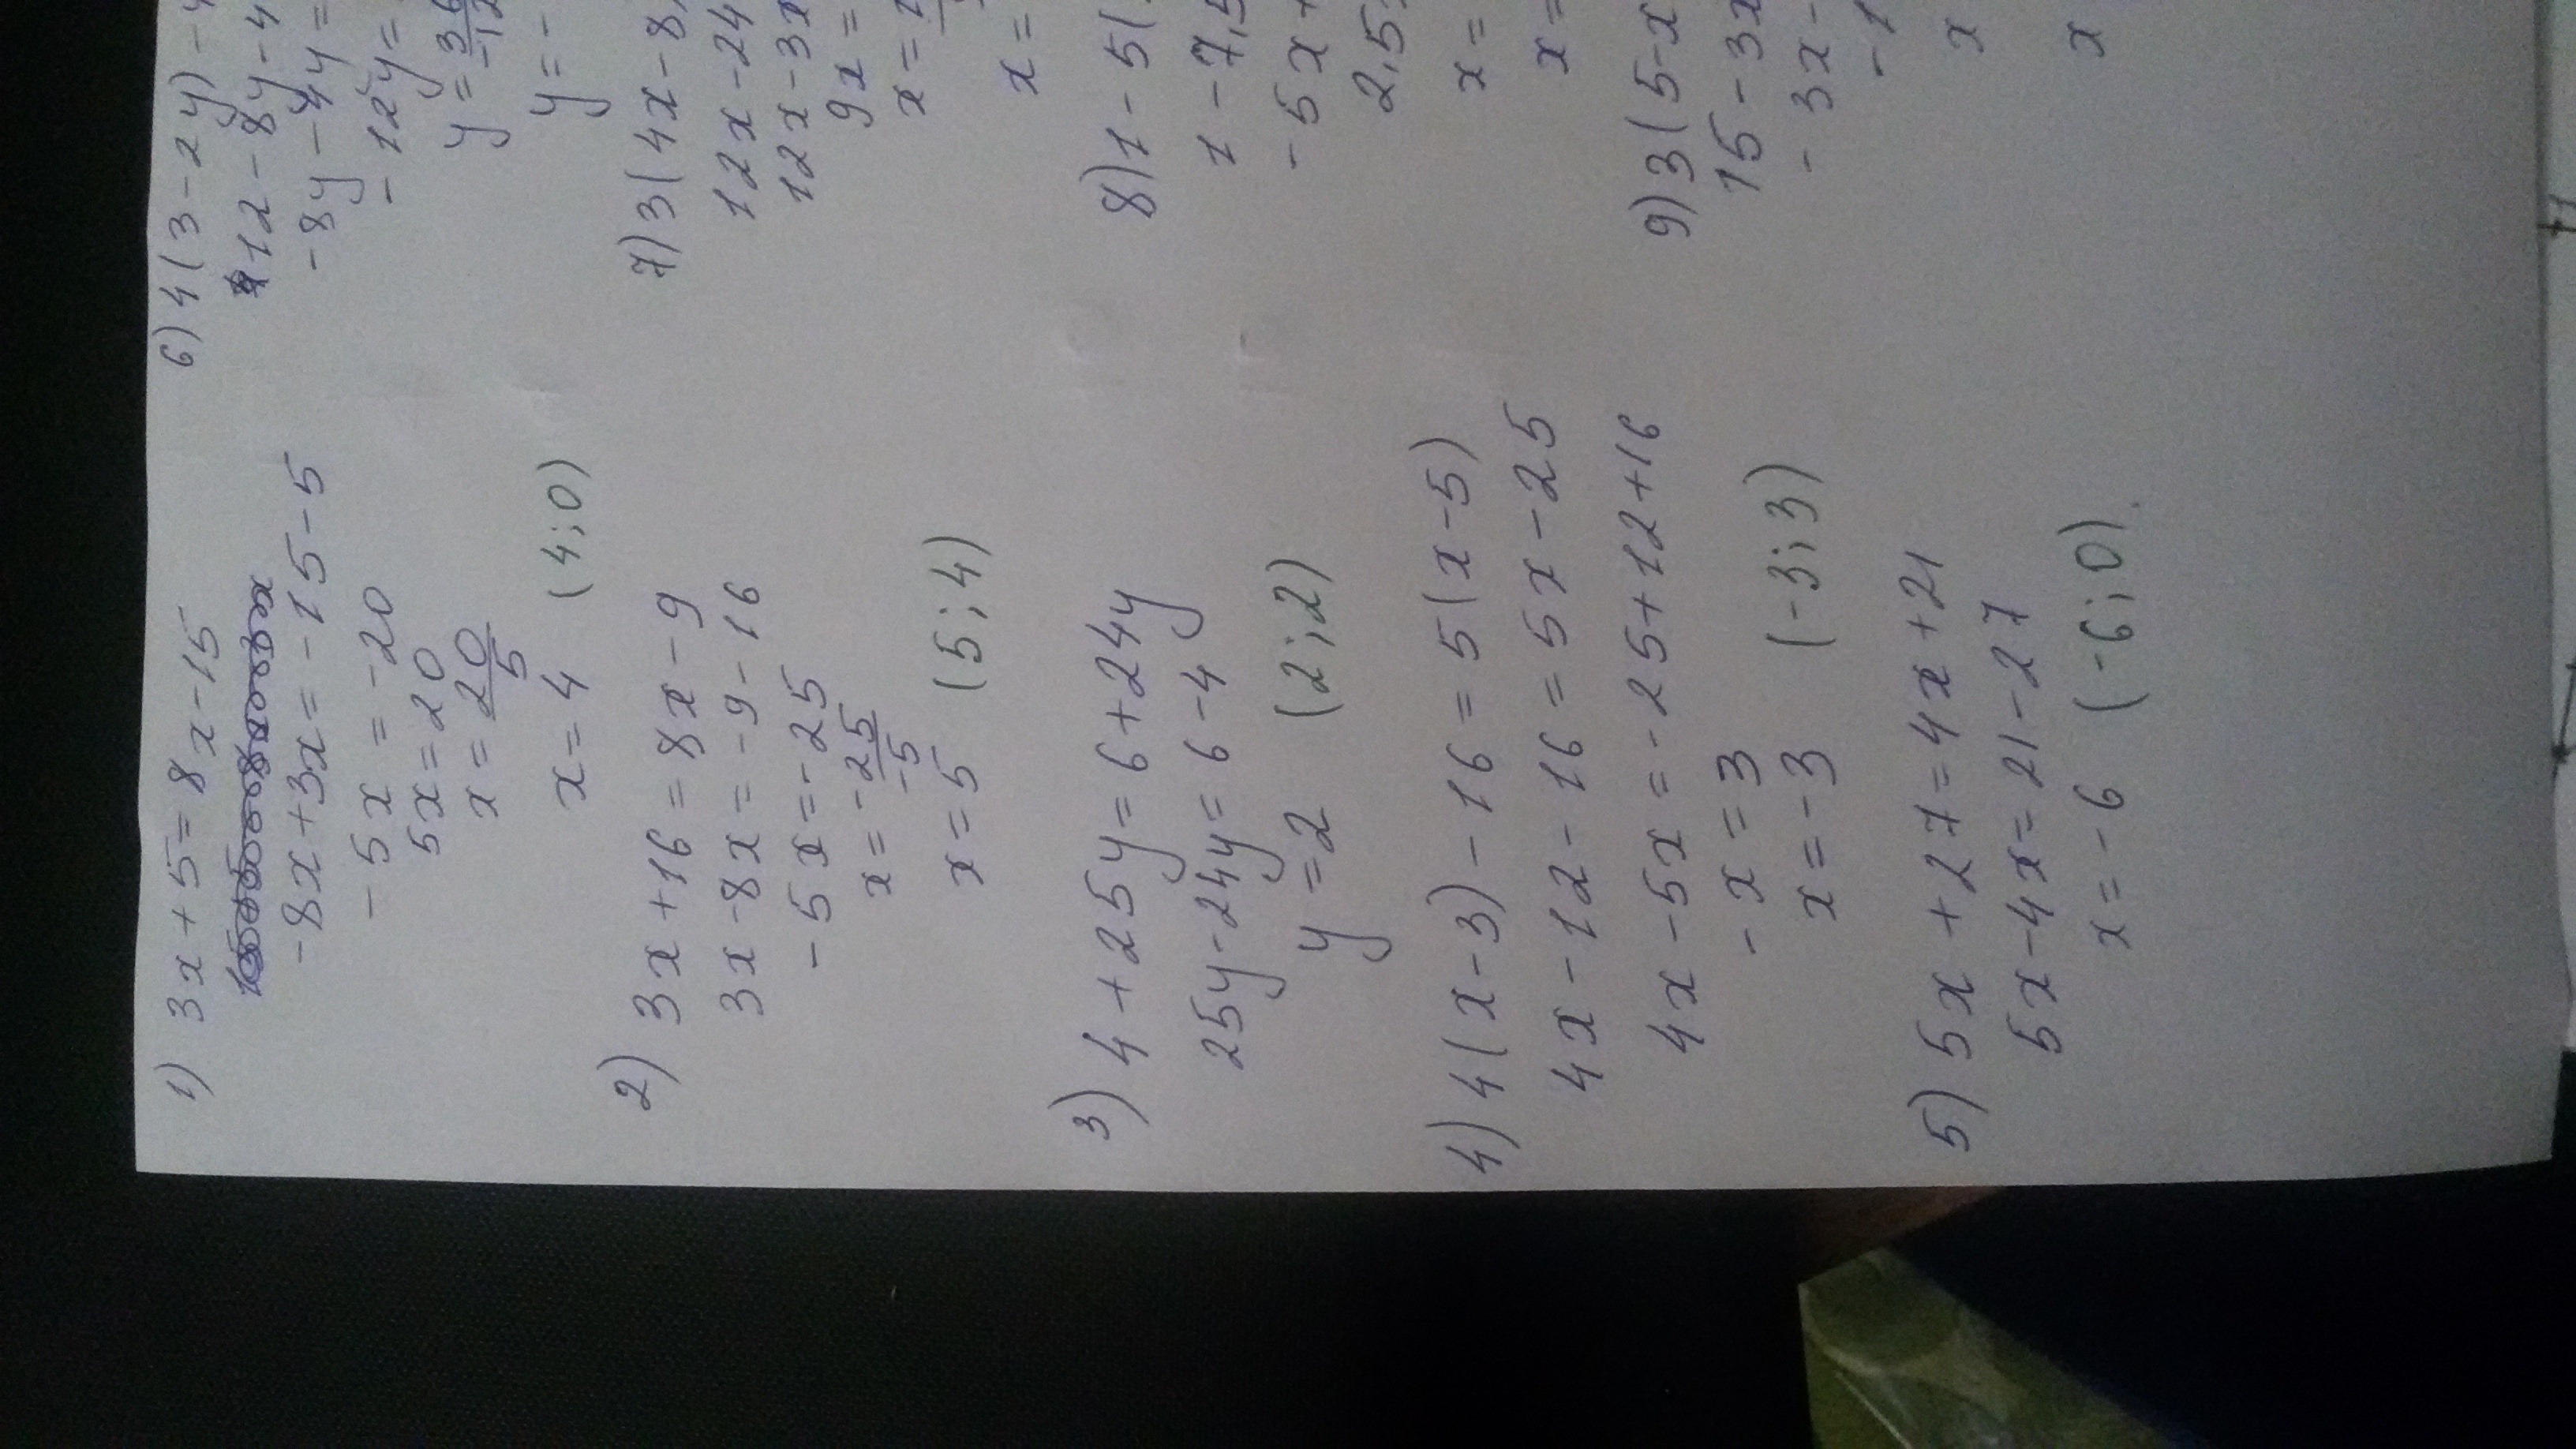 1) 3x + 5 = 8x - 15
-8x + 3x = -15 - 5
-5x = -20
5x = 20
x = 20/5
x = 4 (4;0)
2) 3x + 16 = 8x - 9
3x - 8x = -9 - 16
-5x = -25
x = -25/-5
x = 5 (5;4)
3) 4 + 25y = 6 + 24y
25y - 24y = 6 - 4
y = 2 (2;2)
4) 4(x - 3) - 16 = 5(x - 5)
4x - 12 - 16 = 5x - 25
4x - 5x = -25 + 12 + 16
-x = 3
x = -3 (-3;3)
5) 5x + 27 = 4x + 21
5x - 4x = 21 - 27
x = -6 (-6;0).
6) 4(3 - 2y) -
12 - 8y - 4
-8y - 4y =
-12y =
y =
y = -
7) 3(4x - 8,
12x - 24
12x - 3x
9x =
x =
x =
8) 1 - 5(
1 - 7,5
-5x +
2,5
x =
x =
9) 3(5 - x
15 - 3x
-3x -
-1
x
x